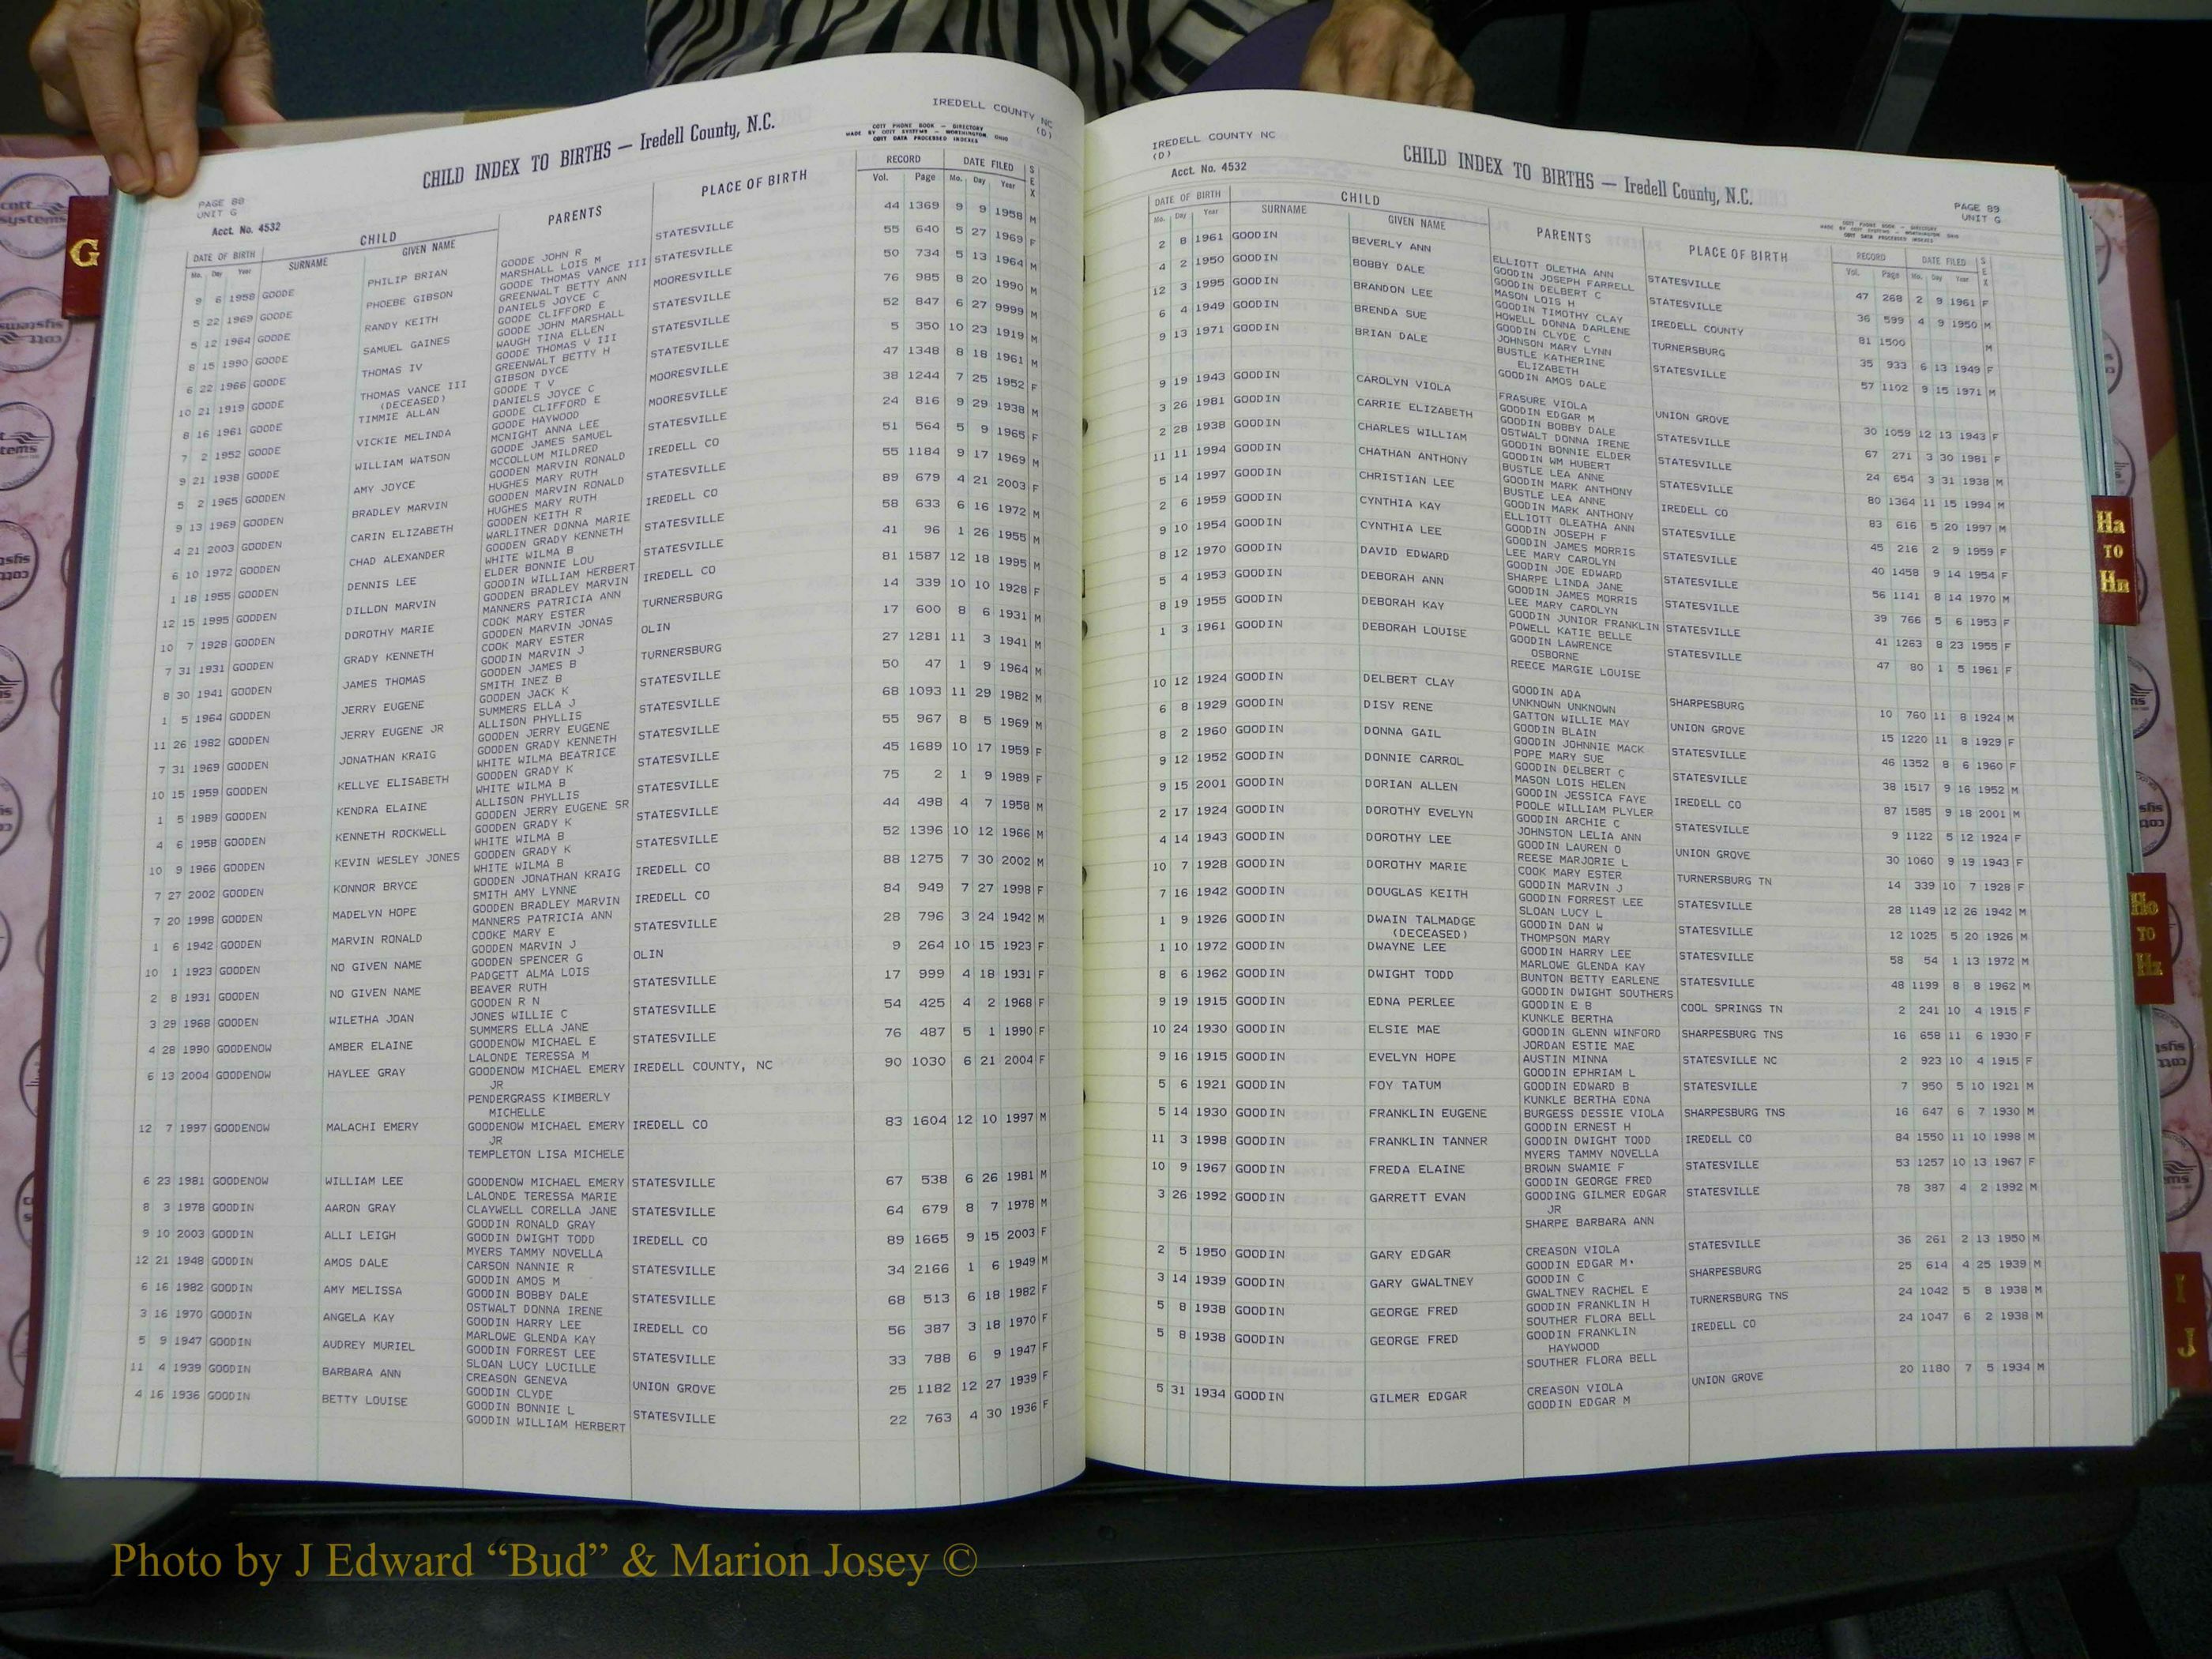 IREDELL COUNTY NC
(D)
COTT PHONE BOOK — DIRECTORY
MADE BY COTT SYSTEMS — WORTHINGTON, OHIO
COTT DATA PROCESSED INDEXES
CHILD INDEX TO BIRTHS — Iredell County, N.C.
PAGE 88
UNIT G
Acct. No. 4532
DATE OF BIRTH CHILD PARENTS PLACE OF BIRTH RECORD DATE FILED SEX
Mo. Day Year SURNAME GIVEN NAME Vol. Page Mo. Day Year
9 6 1958 GOODE PHILIP BRIAN GOODE JOHN R STATESVILLE 44 1369 9 9 1958 M
MARSHALL LOIS M
5 22 1969 GOODE PHOEBE GIBSON GOODE THOMAS VANCE III STATESVILLE 55 640 5 27 1969 F
GREENWALT BETTY ANN
5 12 1964 GOODE RANDY KEITH DANIELS JOYCE C MOORESVILLE 50 734 5 13 1964 M
GOODE CLIFFORD E
8 15 1990 GOODE SAMUEL GAINES GOODE JOHN MARSHALL STATESVILLE 76 985 8 20 1990 M
WAUGH TINA ELLEN
6 22 1966 GOODE THOMAS IV GOODE THOMAS V III STATESVILLE 52 847 6 27 9999 M
GREENWALT BETTY H
10 21 1919 GOODE THOMAS VANCE III GIBSON DYCE STATESVILLE 5 350 10 23 1919 M
(DECEASED) GOODE T V
8 16 1961 GOODE TIMMIE ALLAN DANIELS JOYCE C MOORESVILLE 47 1348 8 18 1961 M
GOODE CLIFFORD E
7 2 1952 GOODE VICKIE MELINDA GOODE HAYWOOD MOORESVILLE 38 1244 7 25 1952 F
MCNIGHT ANNA LEE
9 21 1938 GOODE WILLIAM WATSON GOODE JAMES SAMUEL STATESVILLE 24 816 9 29 1938 M
MCCOLLUM MILDRED
5 2 1965 GOODEN AMY JOYCE GOODEN MARVIN RONALD IREDELL CO 51 564 5 9 1965 F
HUGHES MARY RUTH
9 13 1969 GOODEN BRADLEY MARVIN GOODEN MARVIN RONALD STATESVILLE 55 1184 9 17 1969 M
HUGHES MARY RUTH
4 21 2003 GOODEN CARIN ELIZABETH GOODEN KEITH R IREDELL CO 89 679 4 21 2003 F
WARLITNER DONNA MARIE
6 10 1972 GOODEN CHAD ALEXANDER GOODEN GRADY KENNETH STATESVILLE 58 633 6 16 1972 M
WHITE WILMA B
1 18 1955 GOODEN DENNIS LEE ELDER BONNIE LOU STATESVILLE 41 96 1 26 1955 M
GOODIN WILLIAM HERBERT
12 15 1995 GOODEN DILLON MARVIN GOODEN BRADLEY MARVIN IREDELL CO 81 1587 12 18 1995 M
MANNERS PATRICIA ANN
10 7 1928 GOODEN DOROTHY MARIE COOK MARY ESTER TURNERSBURG 14 339 10 10 1928 F
GOODEN MARVIN JONAS
7 31 1931 GOODEN GRADY KENNETH COOK MARY ESTER OLIN 17 600 8 6 1931 M
GOODIN MARVIN J
8 30 1941 GOODEN JAMES THOMAS GOODEN JAMES B TURNERSBURG 27 1281 11 3 1941 M
SMITH INEZ B
1 5 1964 GOODEN JERRY EUGENE GOODEN JACK K STATESVILLE 50 47 1 9 1964 M
SUMMERS ELLA J
11 26 1982 GOODEN JERRY EUGENE JR ALLISON PHYLLIS STATESVILLE 68 1093 11 29 1982 M
GOODEN JERRY EUGENE
7 31 1969 GOODEN JONATHAN KRAIG GOODEN GRADY KENNETH STATESVILLE 55 967 8 5 1969 M
WHITE WILMA BEATRICE
10 15 1959 GOODEN KELLYE ELISABETH GOODEN GRADY K STATESVILLE 45 1689 10 17 1959 F
WHITE WILMA B
1 5 1989 GOODEN KENDRA ELAINE ALLISON PHYLLIS STATESVILLE 75 2 1 9 1989 F
GOODEN JERRY EUGENE SR
4 6 1958 GOODEN KENNETH ROCKWELL GOODEN GRADY K STATESVILLE 44 498 4 7 1958 M
WHITE WILMA B
10 9 1966 GOODEN KEVIN WESLEY JONES GOODEN GRADY K STATESVILLE 52 1396 10 12 1966 M
WHITE WILMA B
7 27 2002 GOODEN KONNOR BRYCE GOODEN JONATHAN KRAIG IREDELL CO 88 1275 7 30 2002 M
SMITH AMY LYNNE
7 20 1998 GOODEN MADELYN HOPE GOODEN BRADLEY MARVIN IREDELL CO 84 949 7 27 1998 F
MANNERS PATRICIA ANN
1 6 1942 GOODEN MARVIN RONALD COOKE MARY E STATESVILLE 28 796 3 24 1942 M
GOODEN MARVIN J
10 1 1923 GOODEN NO GIVEN NAME GOODEN SPENCER G OLIN 9 264 10 15 1923 F
PADGETT ALMA LOIS
2 8 1931 GOODEN NO GIVEN NAME BEAVER RUTH STATESVILLE 17 999 4 18 1931 F
GOODEN R N
3 29 1968 GOODEN WILETHA JOAN JONES WILLIE C STATESVILLE 54 425 4 2 1968 F
SUMMERS ELLA JANE
4 28 1990 GOODENOW AMBER ELAINE GOODENOW MICHAEL E STATESVILLE 76 487 5 1 1990 F
LALONDE TERESSA M
6 13 2004 GOODENOW HAYLEE GRAY GOODENOW MICHAEL EMERY IREDELL COUNTY, NC 90 1030 6 21 2004 F
JR
PENDERGRASS KIMBERLY
MICHELLE
12 7 1997 GOODENOW MALACHI EMERY GOODENOW MICHAEL EMERY IREDELL CO 83 1604 12 10 1997 M
JR
TEMPLETON LISA MICHELE
6 23 1981 GOODENOW WILLIAM LEE GOODENOW MICHAEL EMERY STATESVILLE 67 538 6 26 1981 M
LALONDE TERESSA MARIE
8 3 1978 GOODIN AARON GRAY CLAYWELL CORELLA JANE STATESVILLE 64 679 8 7 1978 M
GOODIN RONALD GRAY
9 10 2003 GOODIN ALLI LEIGH GOODIN DWIGHT TODD IREDELL CO 89 1665 9 15 2003 F
MYERS TAMMY NOVELLA
12 21 1948 GOODIN AMOS DALE CARSON NANNIE R STATESVILLE 34 2166 1 6 1949 M
GOODIN AMOS M
6 16 1982 GOODIN AMY MELISSA GOODIN BOBBY DALE STATESVILLE 68 513 6 18 1982 F
OSTWALT DONNA IRENE
3 16 1970 GOODIN ANGELA KAY GOODIN HARRY LEE IREDELL CO 56 387 3 18 1970 F
MARLOWE GLENDA KAY
5 9 1947 GOODIN AUDREY MURIEL GOODIN FORREST LEE STATESVILLE 33 788 6 9 1947 F
SLOAN LUCY LUCILLE
11 4 1939 GOODIN BARBARA ANN CREASON GENEVA UNION GROVE 25 1182 12 27 1939 F
GOODIN CLYDE
4 16 1936 GOODIN BETTY LOUISE GOODIN BONNIE L STATESVILLE 22 763 4 30 1936 F
GOODIN WILLIAM HERBERT
IREDELL COUNTY NC
(D)
Acct. No. 4532
CHILD INDEX TO BIRTHS — Iredell County, N.C.
PAGE 89
UNIT G
COTT PHONE BOOK — DIRECTORY
MADE BY COTT SYSTEMS — WORTHINGTON, OHIO
COTT DATA PROCESSED INDEXES
DATE OF BIRTH CHILD PARENTS PLACE OF BIRTH RECORD DATE FILED SEX
Mo. Day Year SURNAME GIVEN NAME Vol. Page Mo. Day Year
2 8 1961 GOODIN BEVERLY ANN ELLIOTT OLETHA ANN STATESVILLE 47 268 2 9 1961 F
GOODIN JOSEPH FARRELL
4 2 1950 GOODIN BOBBY DALE GOODIN DELBERT C STATESVILLE 36 599 4 9 1950 M
MASON LOIS H
12 3 1995 GOODIN BRANDON LEE GOODIN TIMOTHY CLAY IREDELL COUNTY 81 1500 M
HOWELL DONNA DARLENE
6 4 1949 GOODIN BRENDA SUE GOODIN CLYDE C TURNERSBURG 35 933 6 13 1949 F
JOHNSON MARY LYNN
9 13 1971 GOODIN BRIAN DALE BUSTLE KATHERINE STATESVILLE 57 1102 9 15 1971 M
ELIZABETH
GOODIN AMOS DALE
9 19 1943 GOODIN CAROLYN VIOLA FRASURE VIOLA UNION GROVE 30 1059 12 13 1943 F
GOODIN EDGAR M
3 26 1981 GOODIN CARRIE ELIZABETH GOODIN BOBBY DALE STATESVILLE 67 271 3 30 1981 F
OSTWALT DONNA IRENE
2 28 1938 GOODIN CHARLES WILLIAM GOODIN BONNIE ELDER STATESVILLE 24 654 3 31 1938 M
GOODIN WM HUBERT
11 11 1994 GOODIN CHATHAN ANTHONY BUSTLE LEA ANNE STATESVILLE 80 1364 11 15 1994 M
GOODIN MARK ANTHONY
5 14 1997 GOODIN CHRISTIAN LEE BUSTLE LEA ANNE IREDELL CO 83 616 5 20 1997 M
GOODIN MARK ANTHONY
2 6 1959 GOODIN CYNTHIA KAY ELLIOTT OLEATHA ANN STATESVILLE 45 216 2 9 1959 F
GOODIN JOSEPH F
9 10 1954 GOODIN CYNTHIA LEE GOODIN JAMES MORRIS STATESVILLE 40 1458 9 14 1954 F
LEE MARY CAROLYN
8 12 1970 GOODIN DAVID EDWARD GOODIN JOE EDWARD STATESVILLE 56 1141 8 14 1970 M
SHARPE LINDA JANE
5 4 1953 GOODIN DEBORAH ANN GOODIN JAMES MORRIS STATESVILLE 39 766 5 6 1953 F
LEE MARY CAROLYN
8 19 1955 GOODIN DEBORAH KAY GOODIN JUNIOR FRANKLIN STATESVILLE 41 1263 8 23 1955 F
POWELL KATIE BELLE
1 3 1961 GOODIN DEBORAH LOUISE GOODIN LAWRENCE STATESVILLE 47 80 1 5 1961 F
OSBORNE
REECE MARGIE LOUISE
10 12 1924 GOODIN DELBERT CLAY GOODIN ADA SHARPESBURG 10 760 11 8 1924 M
UNKNOWN UNKNOWN
6 8 1929 GOODIN DISY RENE GATTON WILLIE MAY UNION GROVE 15 1220 11 8 1929 F
GOODIN BLAIN
8 2 1960 GOODIN DONNA GAIL GOODIN JOHNNIE MACK STATESVILLE 46 1352 8 6 1960 F
POPE MARY SUE
9 12 1952 GOODIN DONNIE CARROL GOODIN DELBERT C STATESVILLE 38 1517 9 16 1952 M
MASON LOIS HELEN
9 15 2001 GOODIN DORIAN ALLEN GOODIN JESSICA FAYE IREDELL CO 87 1585 9 18 2001 M
POOLE WILLIAM PLYLER
2 17 1924 GOODIN DOROTHY EVELYN GOODIN ARCHIE C STATESVILLE 9 1122 5 12 1924 F
JOHNSTON LELIA ANN
4 14 1943 GOODIN DOROTHY LEE GOODIN LAUREN O UNION GROVE 30 1060 9 19 1943 F
REESE MARJORIE L
10 7 1928 GOODIN DOROTHY MARIE COOK MARY ESTER TURNERSBURG TN 14 339 10 7 1928 F
GOODIN MARVIN J
7 16 1942 GOODIN DOUGLAS KEITH GOODIN FORREST LEE STATESVILLE 28 1149 12 26 1942 M
SLOAN LUCY L
1 9 1926 GOODIN DWAIN TALMADGE GOODIN DAN W STATESVILLE 12 1025 5 20 1926 M
(DECEASED) THOMPSON MARY
1 10 1972 GOODIN DWAYNE LEE GOODIN HARRY LEE STATESVILLE 58 54 1 13 1972 M
MARLOWE GLENDA KAY
8 6 1962 GOODIN DWIGHT TODD BUNTON BETTY EARLENE STATESVILLE 48 1199 8 8 1962 M
GOODIN DWIGHT SOUTHERS
9 19 1915 GOODIN EDNA PERLEE GOODIN E B COOL SPRINGS TN 2 241 10 4 1915 F
KUNKLE BERTHA
10 24 1930 GOODIN ELSIE MAE GOODIN GLENN WINFORD SHARPESBURG TNS 16 658 11 6 1930 F
JORDAN ESTIE MAE
9 16 1915 GOODIN EVELYN HOPE AUSTIN MINNA STATESVILLE NC 2 923 10 4 1915 F
GOODIN EPHRIAM L
5 6 1921 GOODIN FOY TATUM GOODIN EDWARD B STATESVILLE 7 950 5 10 1921 M
KUNKLE BERTHA EDNA
5 14 1930 GOODIN FRANKLIN EUGENE BURGESS DESSIE VIOLA SHARPESBURG TNS 16 647 6 7 1930 M
GOODIN ERNEST H
11 3 1998 GOODIN FRANKLIN TANNER GOODIN DWIGHT TODD IREDELL CO 84 1550 11 10 1998 M
MYERS TAMMY NOVELLA
10 9 1967 GOODIN FREDA ELAINE BROWN SWAMIE F STATESVILLE 53 1257 10 13 1967 F
GOODIN GEORGE FRED
3 26 1992 GOODIN GARRETT EVAN GOODING GILMER EDGAR STATESVILLE 78 387 4 2 1992 M
JR
SHARPE BARBARA ANN
2 5 1950 GOODIN GARY EDGAR CREASON VIOLA STATESVILLE 36 261 2 13 1950 M
GOODIN EDGAR M
3 14 1939 GOODIN GARY GWALTNEY GOODIN C SHARPESBURG 25 614 4 25 1939 M
GWALTNEY RACHEL E
5 8 1938 GOODIN GEORGE FRED GOODIN FRANKLIN H TURNERSBURG TNS 24 1042 5 8 1938 M
SOUTHER FLORA BELL
5 8 1938 GOODIN GEORGE FRED GOODIN FRANKLIN IREDELL CO 24 1047 6 2 1938 M
HAYWOOD
SOUTHER FLORA BELL
5 31 1934 GOODIN GILMER EDGAR CREASON VIOLA UNION GROVE 20 1180 7 5 1934 M
GOODIN EDGAR M
G
Ha
TO
Hn
Ho
TO
Hz
I
J
Photo by J Edward “Bud” & Marion Josey ©